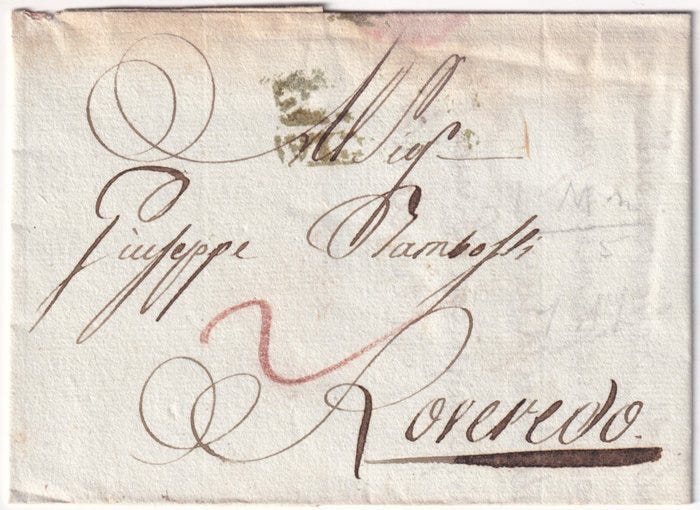 Al Sigr
Giuseppe Stambossi
2
Roveredo.